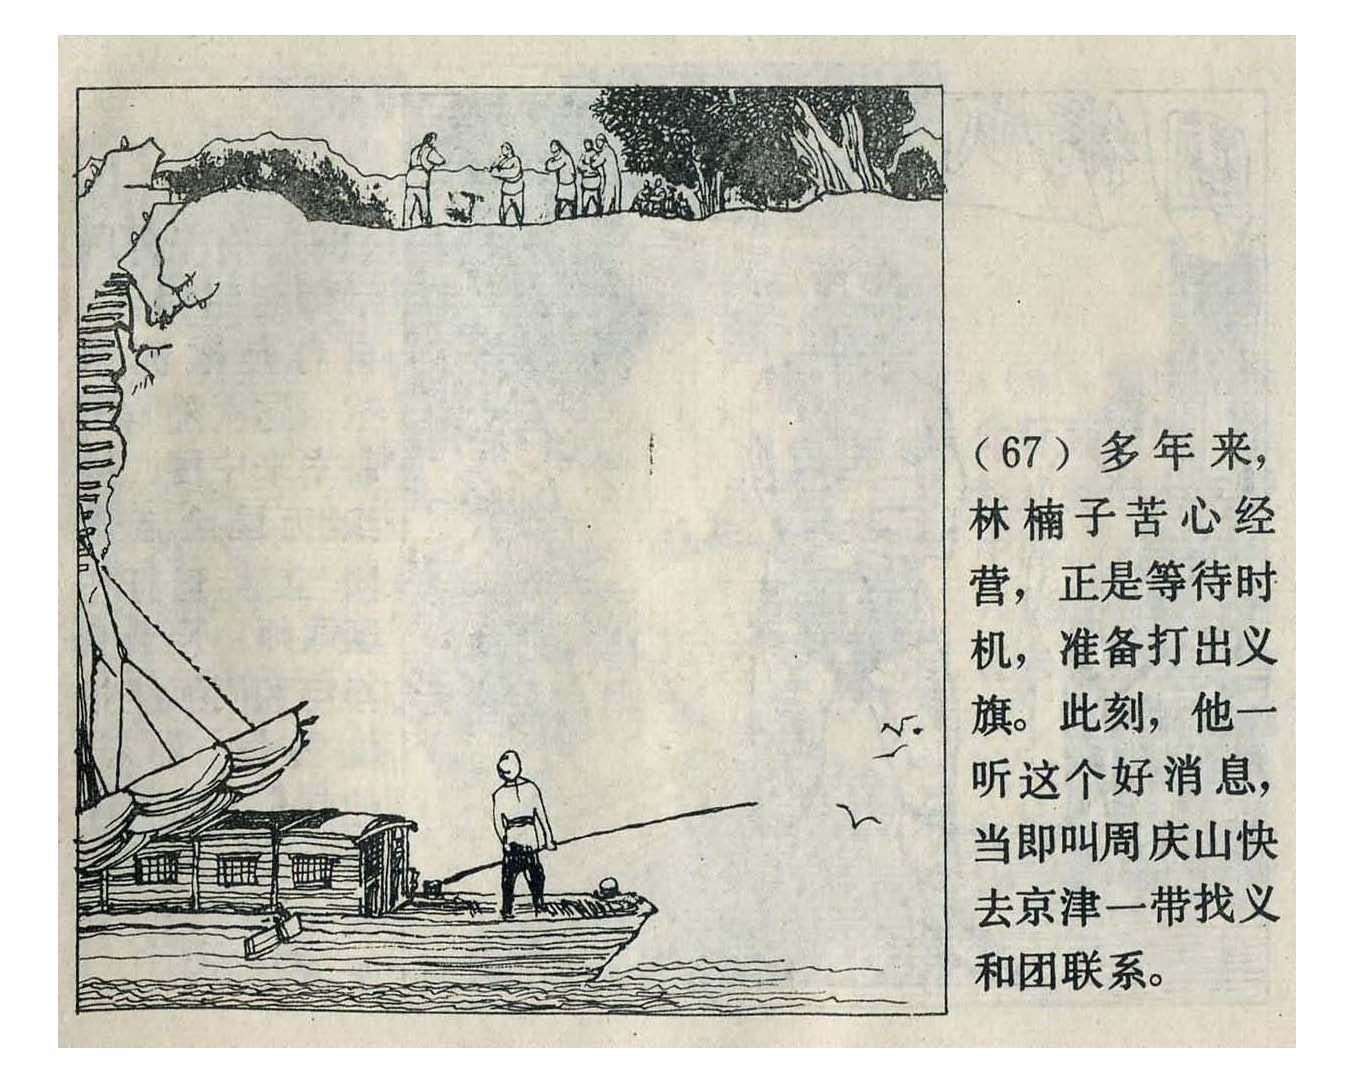 （67）多年来，
林楠子苦心经
营，正是等待时
机，准备打出义
旗。此刻，他一
听这个好消息，
当即叫周庆山快
去京津一带找义
和团联系。